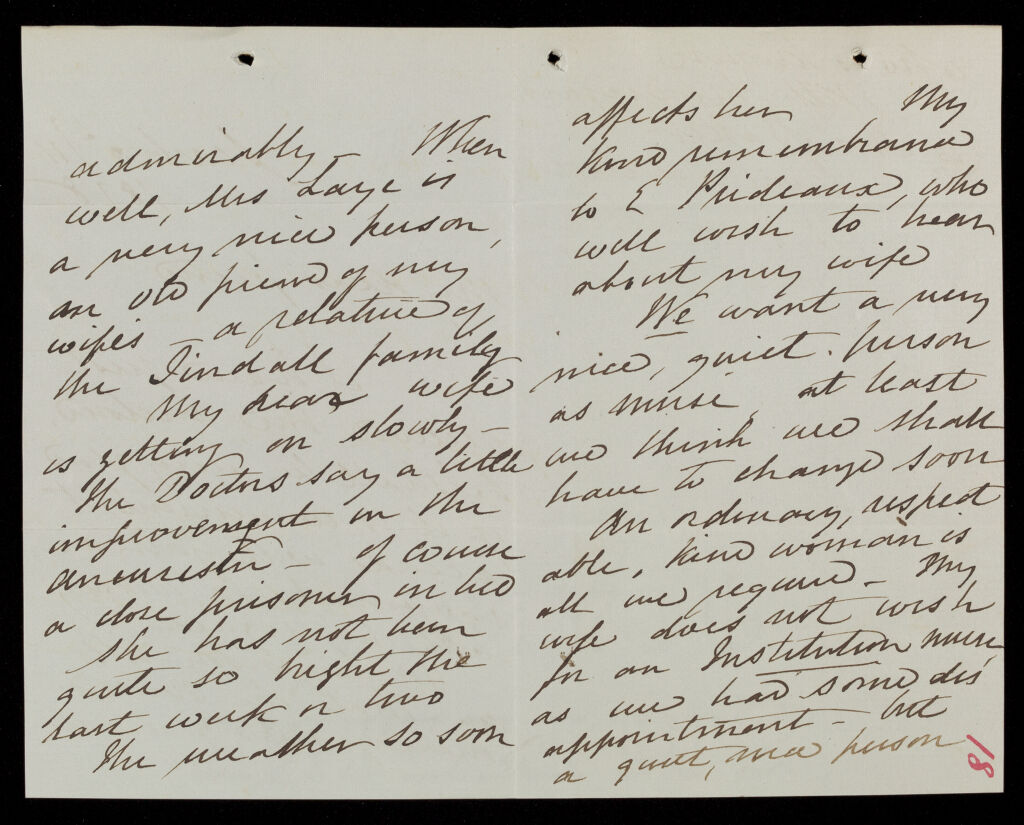 admirably – When
well, Mrs Laye is
a very nice person,
an old friend of my
wife's – a relative of
the Tindall family
My dear wife
is getting on slowly –
The Doctors say a little
improvement in the
aneurism – of course
a close prisoner in bed
She has not been
quite so bright the
last week or two
The weather so soon
affects her My
kind remembrance
to E Prideaux, who
will wish to hear
about my wife
We want a very
nice, quiet. person
as nurse, at least
we think we shall
have to change soon
An ordinary, respect
able, kind woman is
all we require – My
wife does not wish
for an Institution nurse,
as we had some dis
appointment – but
a quiet, nice person
81